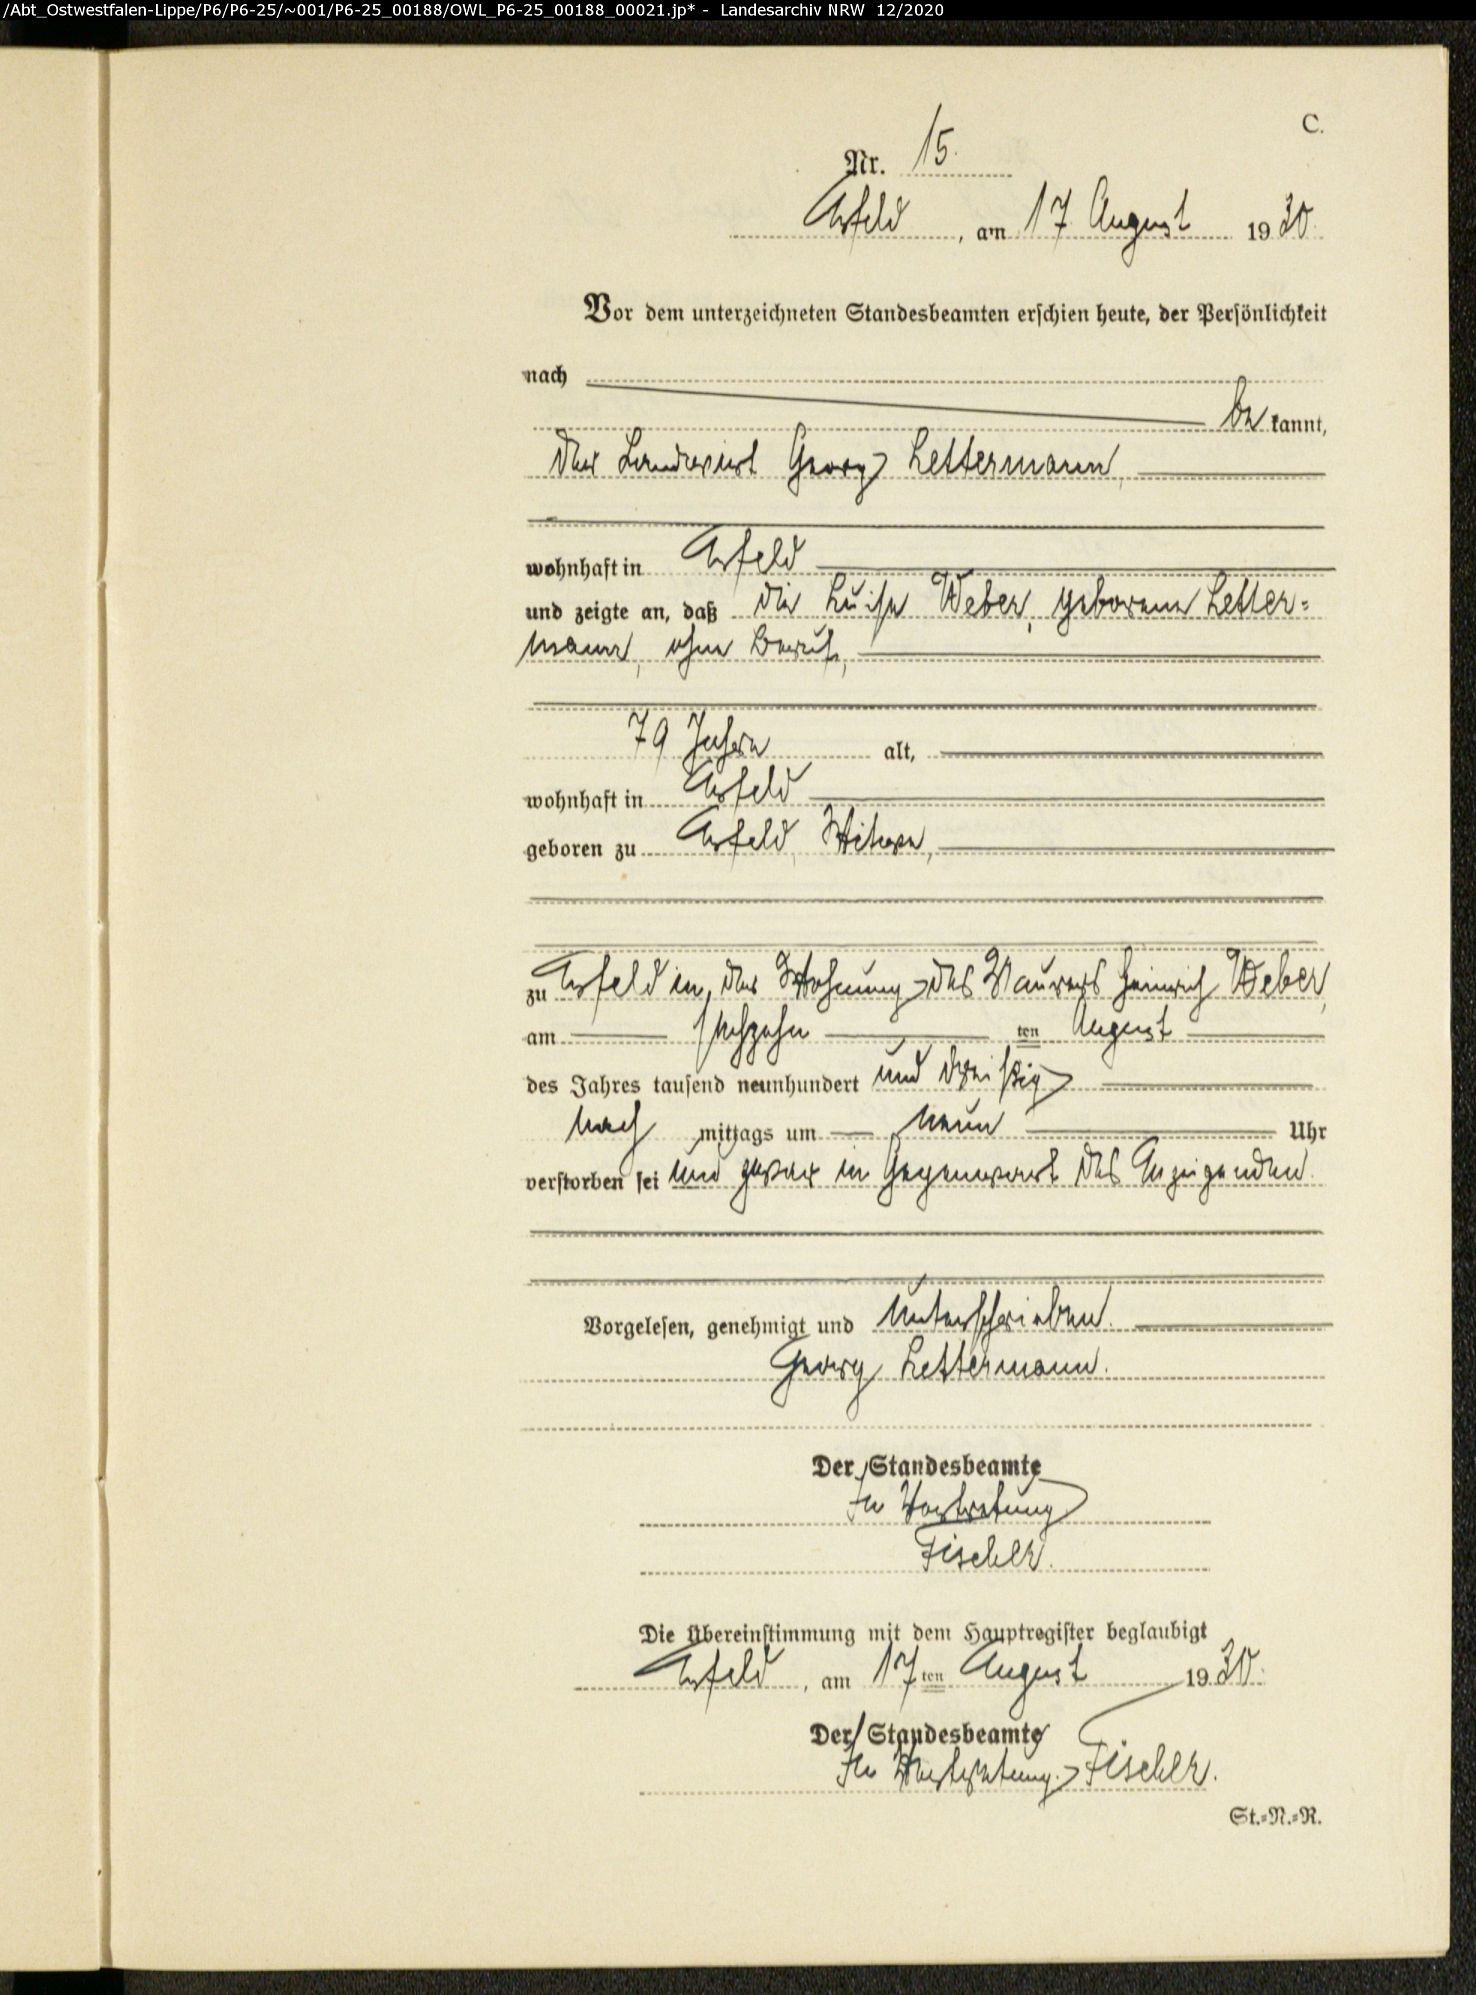 /Abt_Ostwestfalen-Lippe/P6/P6-25/~001/P6-25_00188/OWL_P6-25_00188_00021.jp* - Landesarchiv NRW 12/2020
C.
Nr. 15.
Arfeld, am 17 August 1930.
Vor dem unterzeichneten Standesbeamten erschien heute, der Persönlichkeit
nach
be kannt,
der Landwirt Georg Lettermann,
wohnhaft in Arfeld
und zeigte an, daß die Luise Weber, geborene Letter-
mann, ohne Beruf,
79 Jahre alt,
wohnhaft in Arfeld
geboren zu Arfeld, Witwe,
zu Arfeld in der Wohnung des Maurers Heinrich Weber,
am sechzehn ten August
des Jahres tausend neunhundert und dreißig
nach mittags um neun Uhr
verstorben sei und zwar in Gegenwart des Anzeigenden.
Vorgelesen, genehmigt und unterschrieben.
Georg Lettermann.
Der Standesbeamte
In Vertretung
Fischer.
Die Übereinstimmung mit dem Hauptregister beglaubigt
Arfeld, am 17ten August 1930.
Der Standesbeamte
In Vertretung. Fischer.
St.-N.-R.